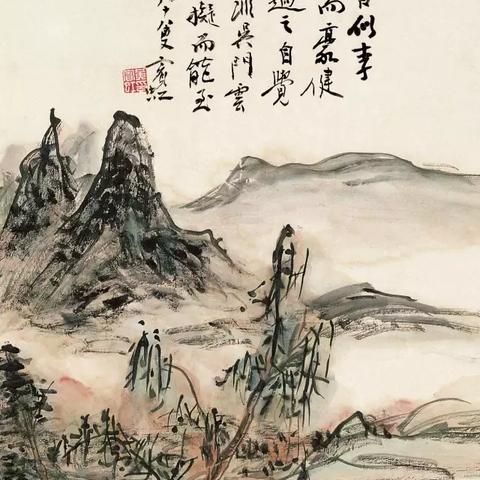 似李
而豪健
過之自覺
非吳門雲
擬而能至
叟賓虹